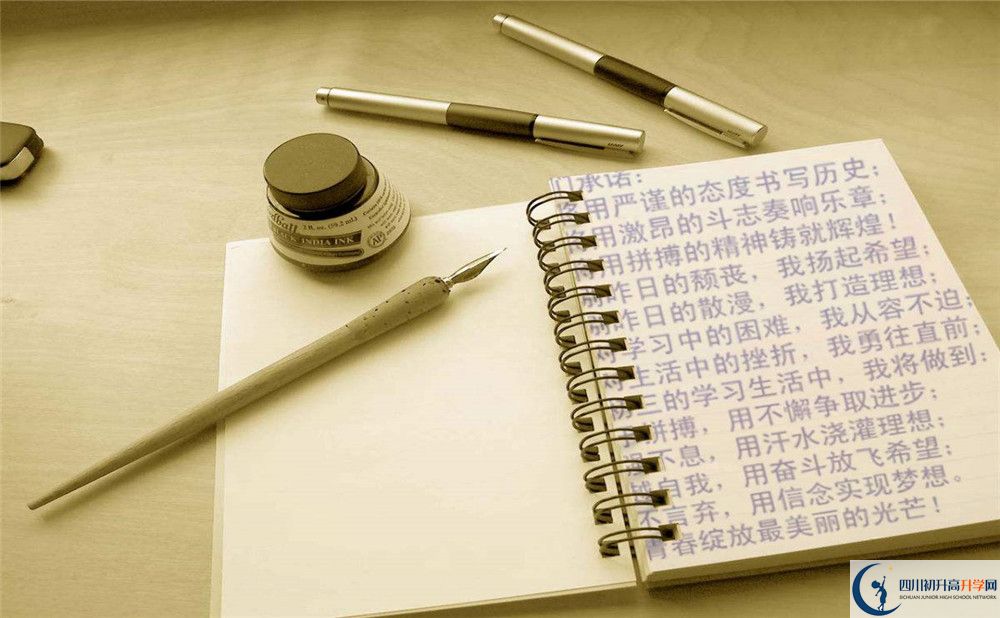 们承诺：
将用严谨的态度书写历史；
用激昂的斗志奏响乐章；
用拼搏的精神铸就辉煌！
昨日的颓丧，我扬起希望；
昨日的散漫，我打造理想；
对学习中的困难，我从容不迫；
对生活中的挫折，我勇往直前；
三的学习生活中，我将做到：
拼搏，用不懈争取进步；
不息，用汗水浇灌理想；
越自我，用奋斗放飞希望；
不言弃，用信念实现梦想。
青春绽放最美丽的光芒！
2 fl. oz. (59.2 mL)
INDIA INK
AP
LAMY
四川初升高升学网
SICHUAN JUNIOR HIGH SCHOOL NETWORK